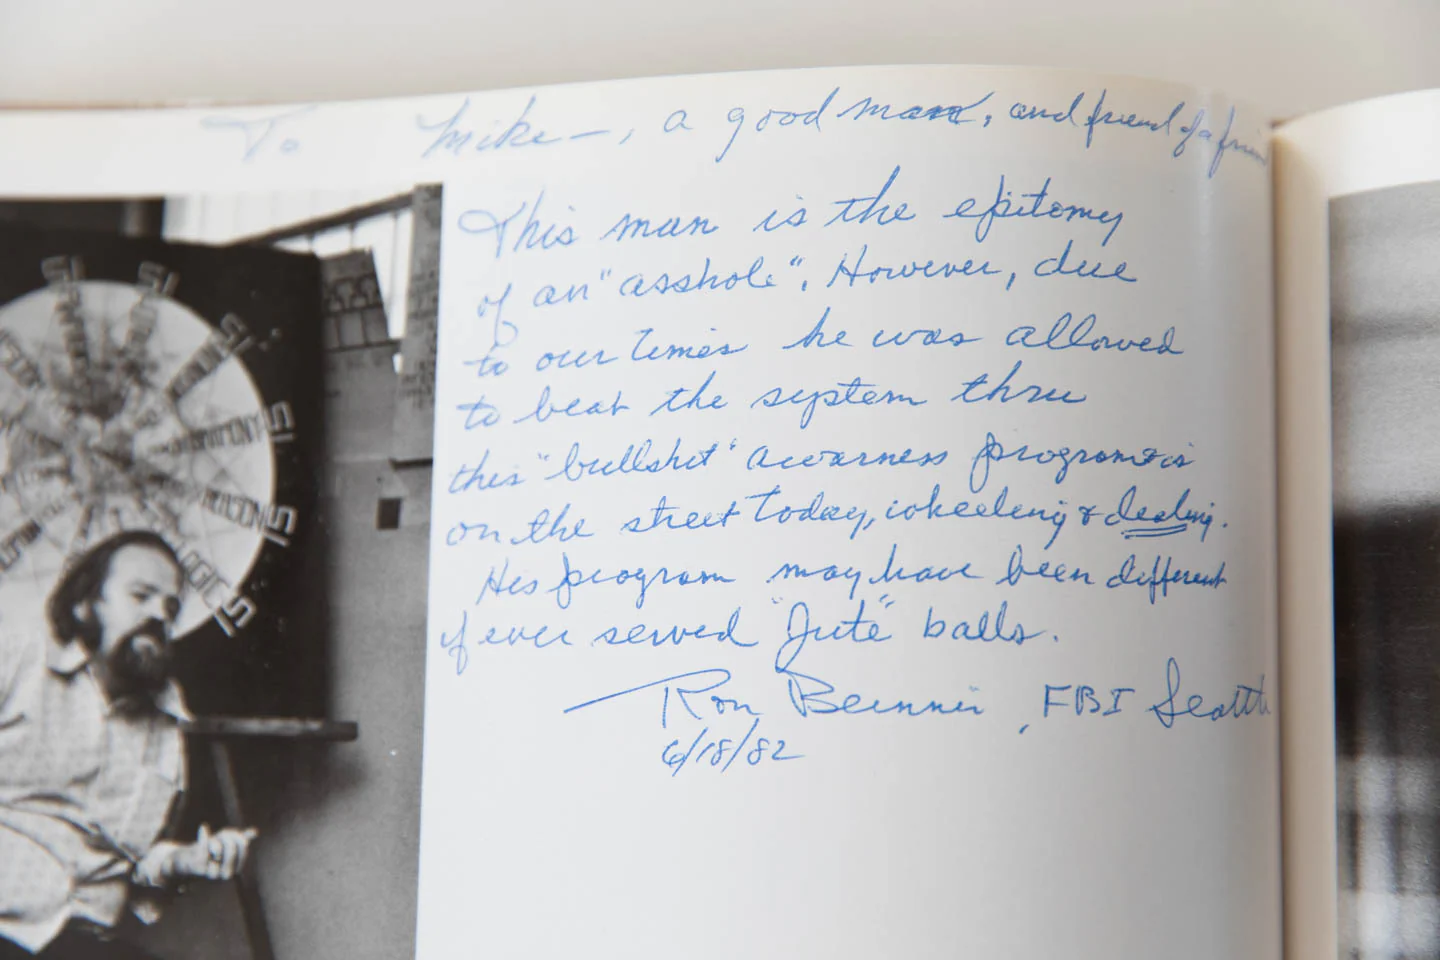 To Mike—, a good man, and friend of a frien
This man is the epitomy
of an "asshole". However, due
to our times he was allowed
to beat the system thru
this "bullshit" awarness program & is
on the street today, wheeling & dealing.
His program may have been different
if ever served "Jute" balls.
Ron , FBI Seattle
6/18/82